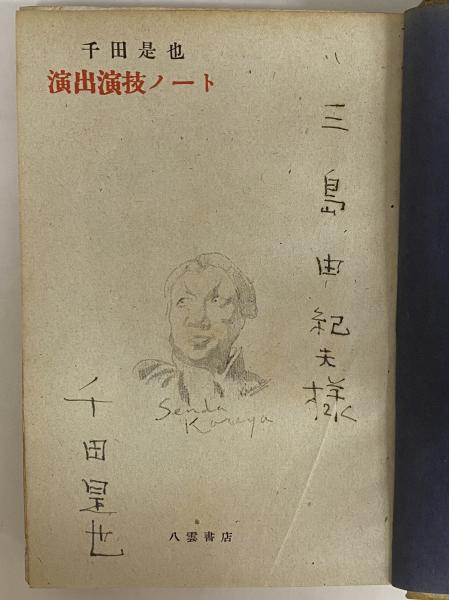 千田是也
演出演技ノート
三島由紀夫様
Senda
Koreya
千田是也
八雲書店